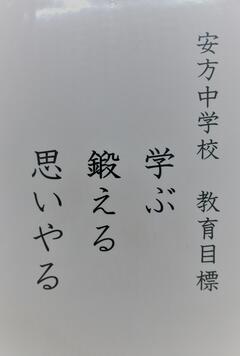 安方中学校　教育目標
学ぶ
鍛える
思いやる